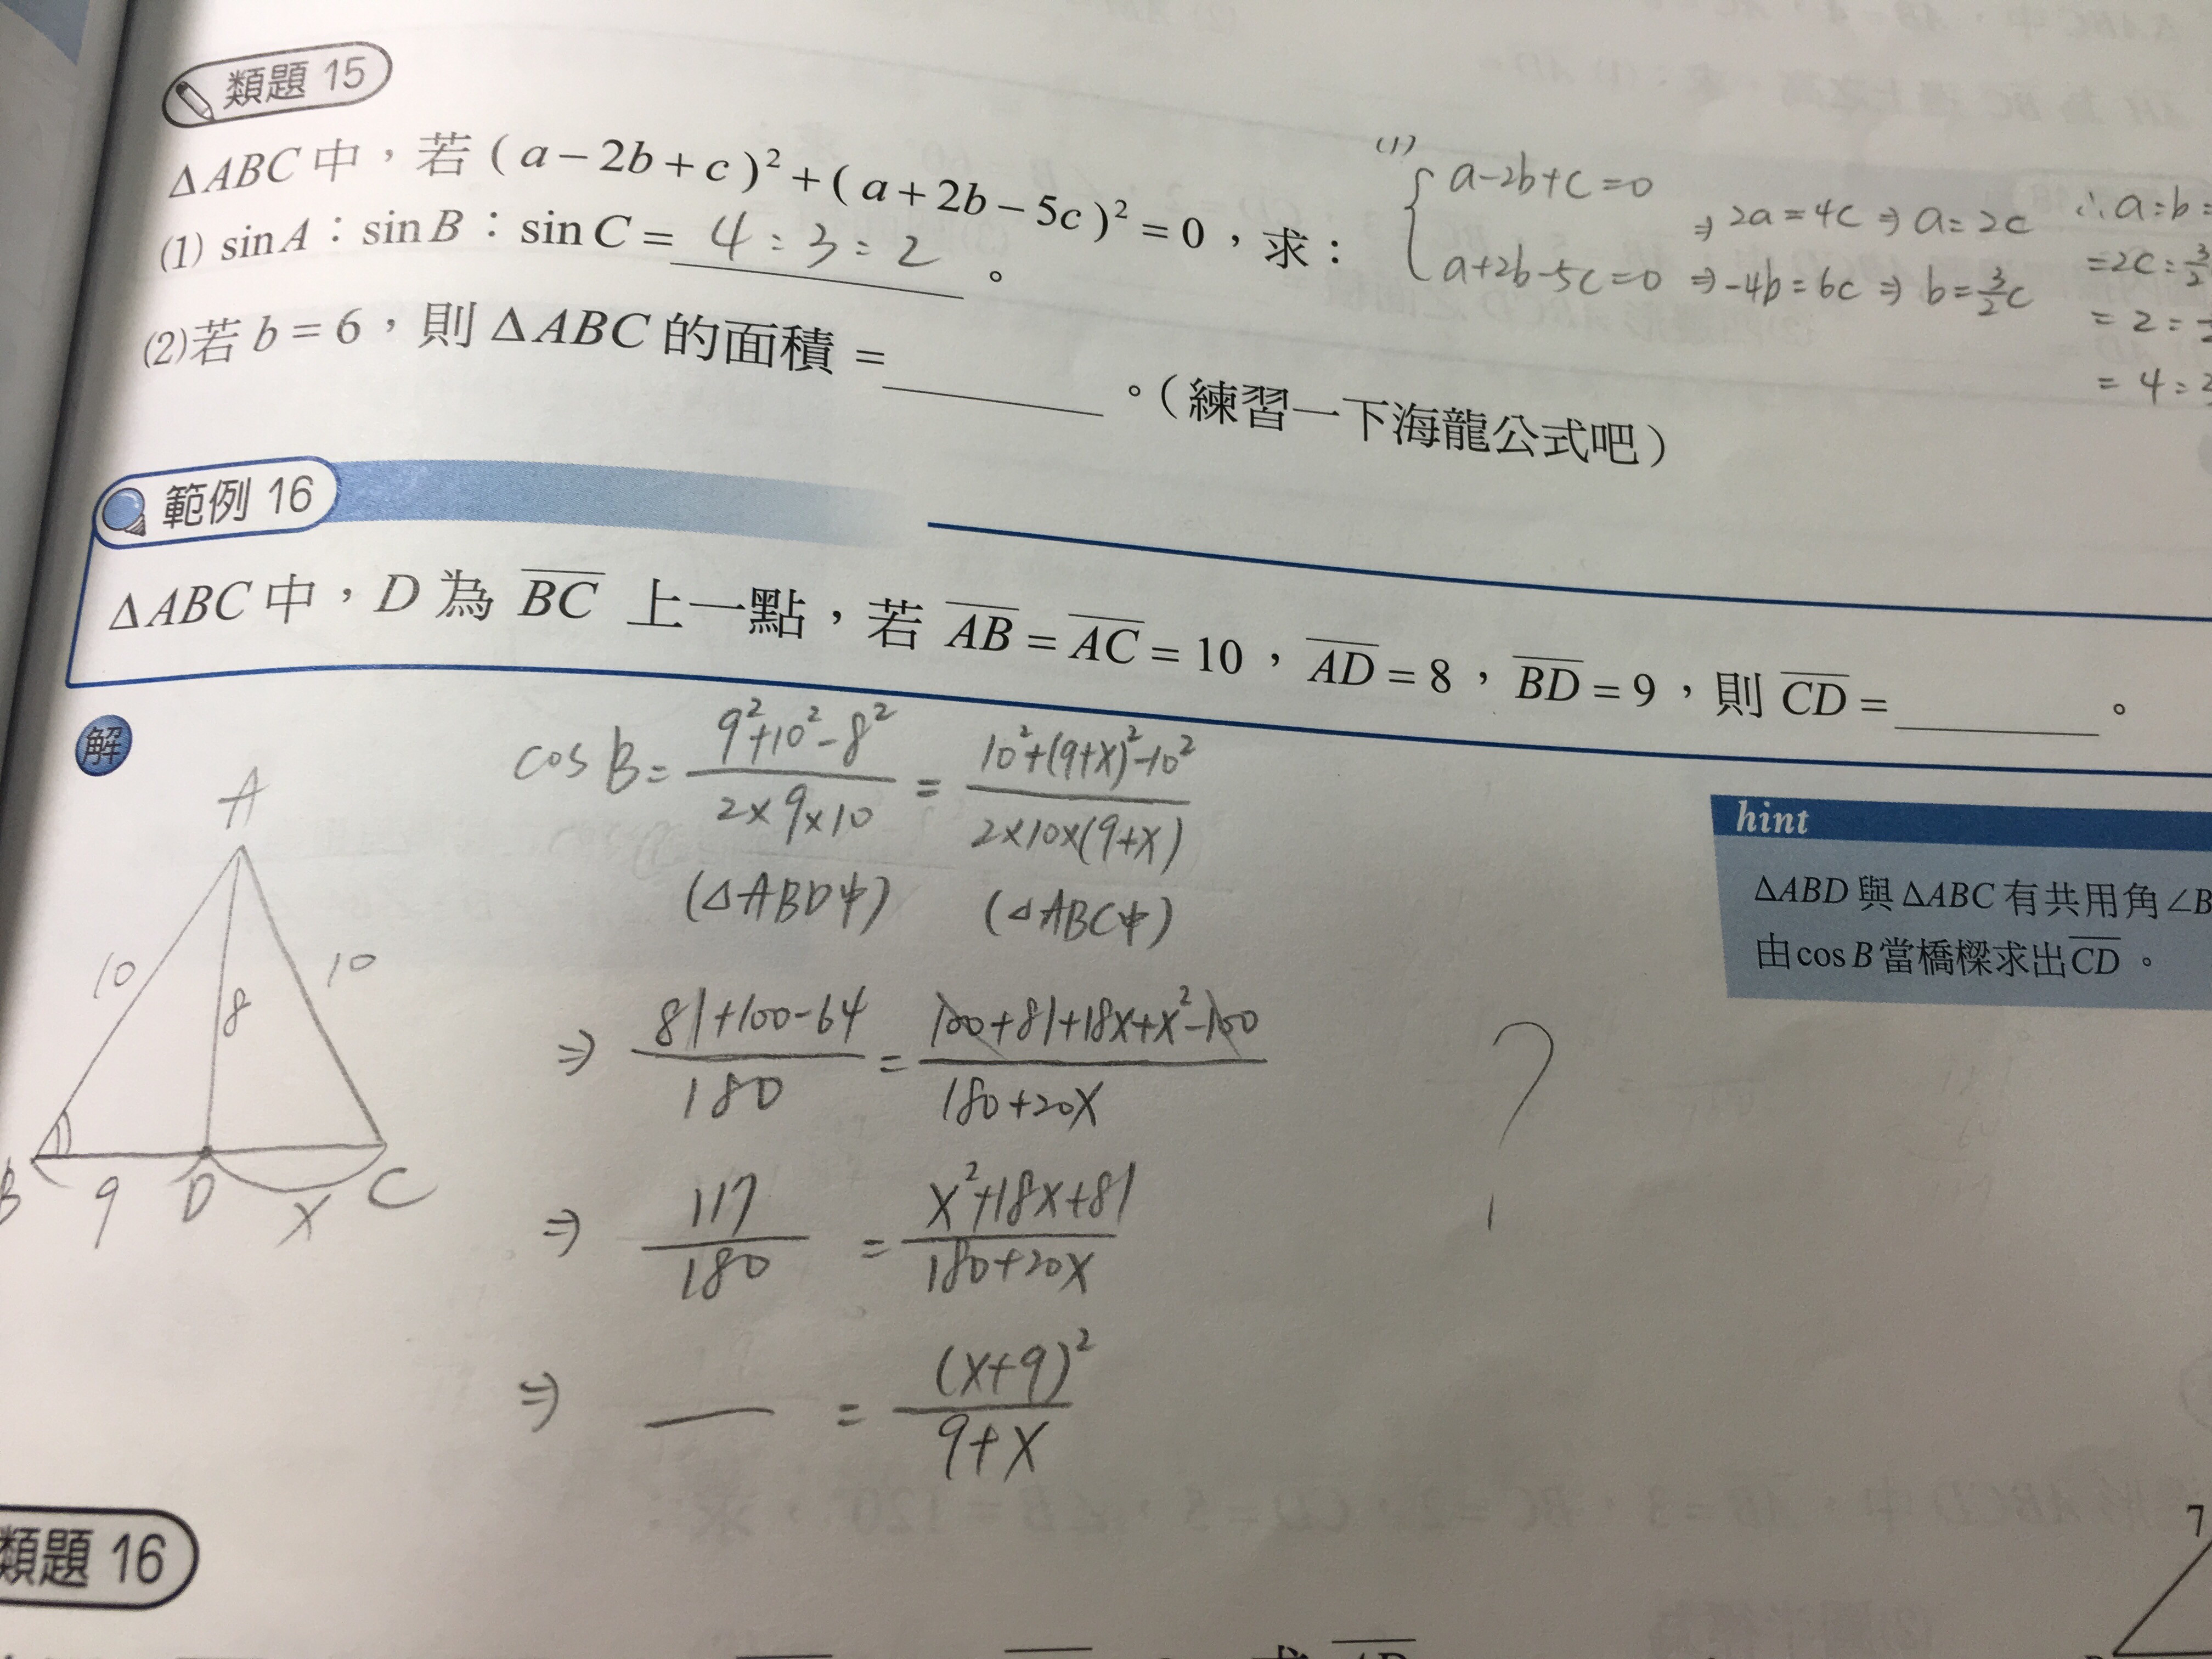 類題 15
ΔABC 中，若 (a－2b＋c)²＋(a＋2b－5c)²＝0，求：
(1) sinA：sinB：sinC＝ 4：3：2 。
(2)若 b＝6，則 ΔABC 的面積＝＿＿＿。（練習一下海龍公式吧）
(1)
a-2b+c=0
a+2b-5c=0
⇒ 2a=4c ⇒ a=2c
⇒ -4b=6c ⇒ b=3/2c
∴ a:b:
=2c:3/2
=2:
=4:3
範例 16
ΔABC 中，D 為 BC 上一點，若 AB＝AC＝10，AD＝8，BD＝9，則 CD＝＿＿＿。
解
A
10
8
10
B
9
D
x
C
cos B= (9²+10²-8²)/(2×9×10) = (10²+(9+x)²-10²)/(2×10×(9+x))
(ΔABD中) (ΔABC中)
⇒ (81+100-64)/180 = (100+81+18x+x²-100)/(180+20x)
⇒ 117/180 = (x²+18x+81)/(180+20x)
⇒ — = (x+9)²/(9+x)
?
hint
ΔABD 與 ΔABC 有共用角∠B
由 cos B 當橋樑求出 CD。
類題 16
7